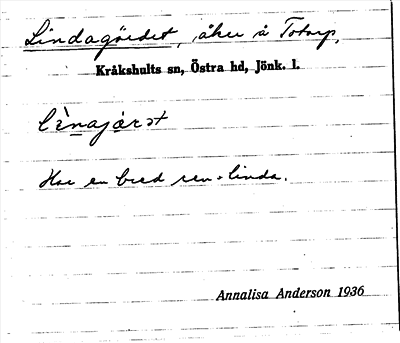 Lindagärdet, åker å Totarp,
Kråkshults sn, Östra hd, Jönk. l.
lìnajærət
Har en bred ren = linda.
Annalisa Anderson 1936